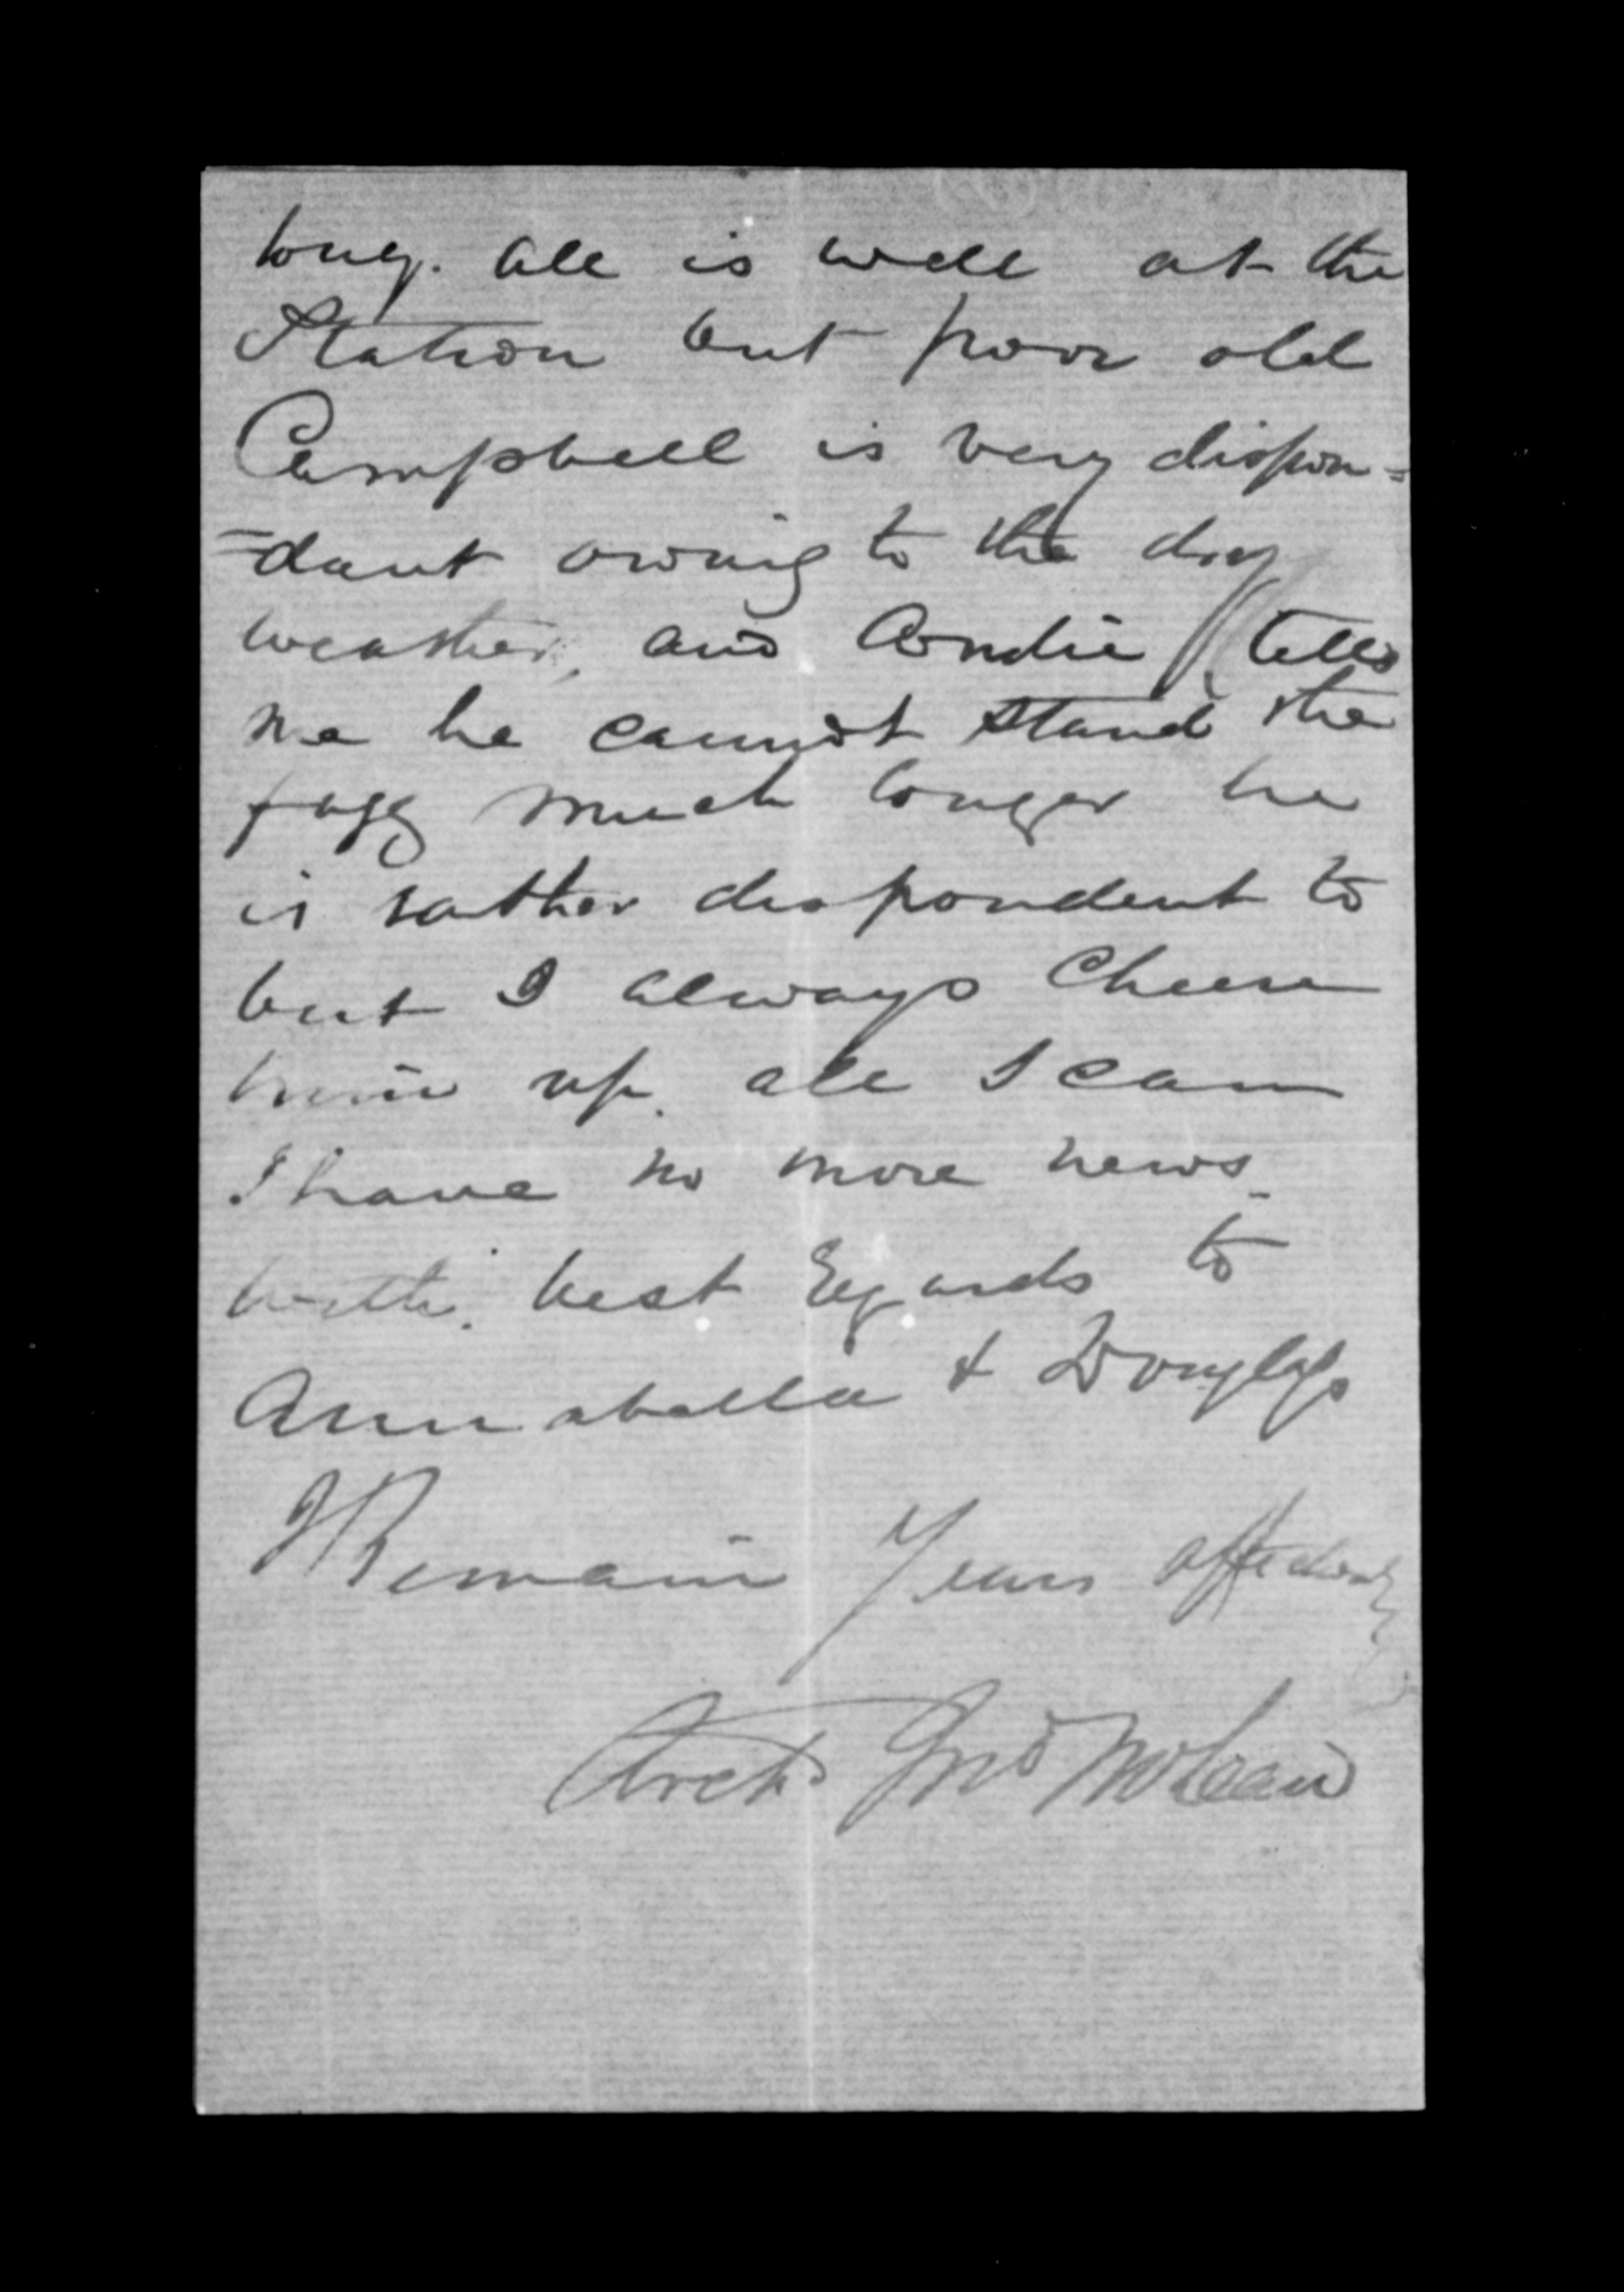 long. All is well at the
Station but poor old
Campbell is very dispon=
=dant owing to the dry
weather, and Andie tells
me he cannot stand the
fagg much longer he
is rather dispondent to
but I always Cheer
him up. all I can
I have no more news
with best regards to
Annabella & Douglas
I Remain Yours affectionately
Archd Jno McLean